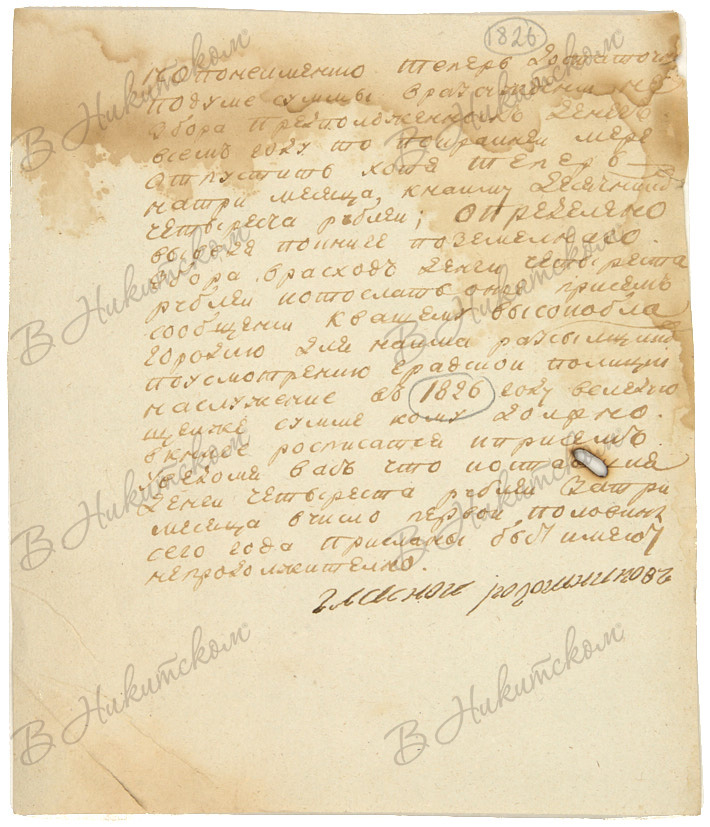 1826
но понеимению теперь достаточн
подуме суммы вразсуждении не
збора предположенныхъ денегъ
всемъ году то покрайней мере
отпустить хотя теперь
натри месяца, кнайму десяцкихъ
четыреста рублей; определено
выведя покниге поземелнаго
збора врасходъ денги четыреста
рублей и отослать оные присемъ
сообщении квашему высокобла
городию для найма разсылщик
поусмотрению градской полиции
наслужение въ 1826 году велено
щейже сумме кому должно
вкниге росписатся иприсемъ
уведомя васъ что
денги четыреста рублей затри
месяца вчисло первой половины
сего года присланы быть имеютъ
непродолжително.
гласной
В Никитском
В Никитском
В Никитском
В Никитском
В Никитском
В Никитском
В Никитском
В Никитском